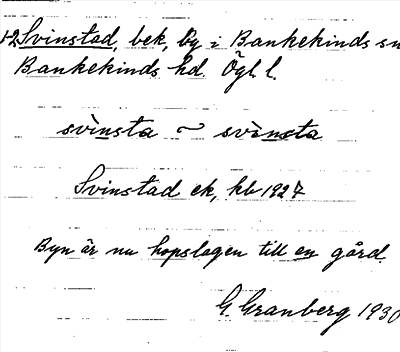 1-2 Svinstad, bek, by i Bankekinds sn
Bankekinds hd. Ögl l.
svìnsta ~ svìnsta
Svinstad ek, kb 1927
Byn är nu hopslagen till en gård.
G. Granberg 1930